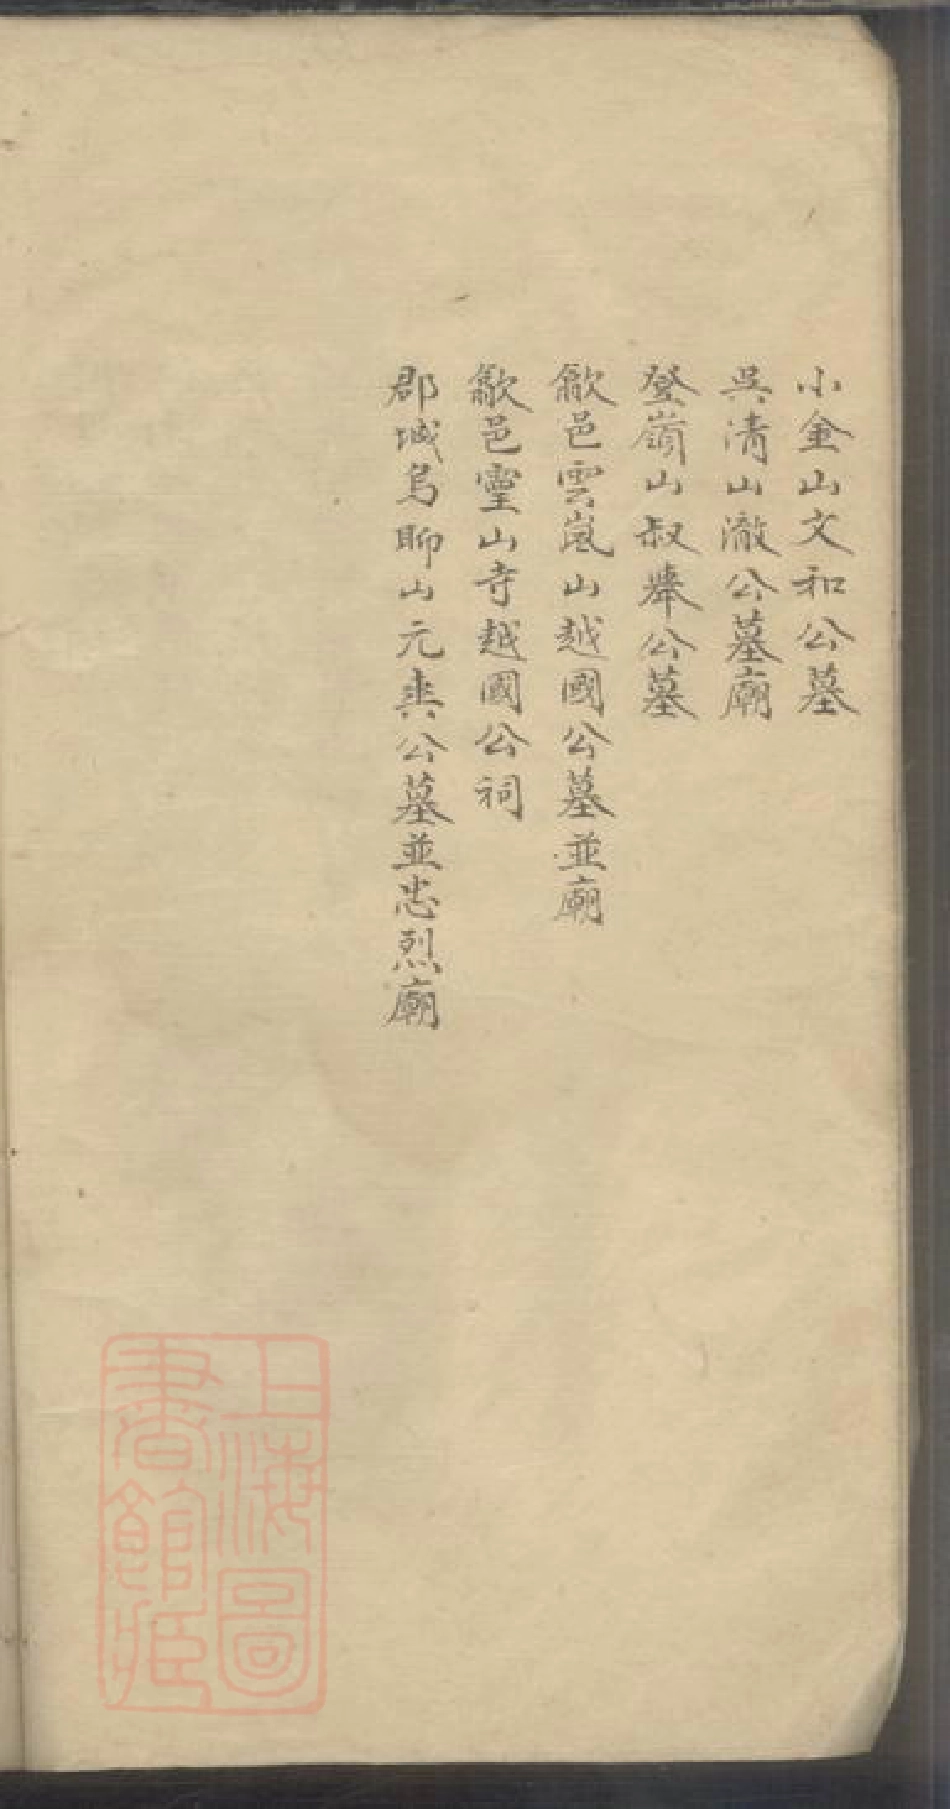 小金山文和公墓
吳清山澈公墓廟
登嶺山叔舉公墓
歙邑雲嵐山越國公墓並廟
歙邑靈山寺越國公祠
郡城烏聊山元爽公墓並忠烈廟
上海圖
書館藏